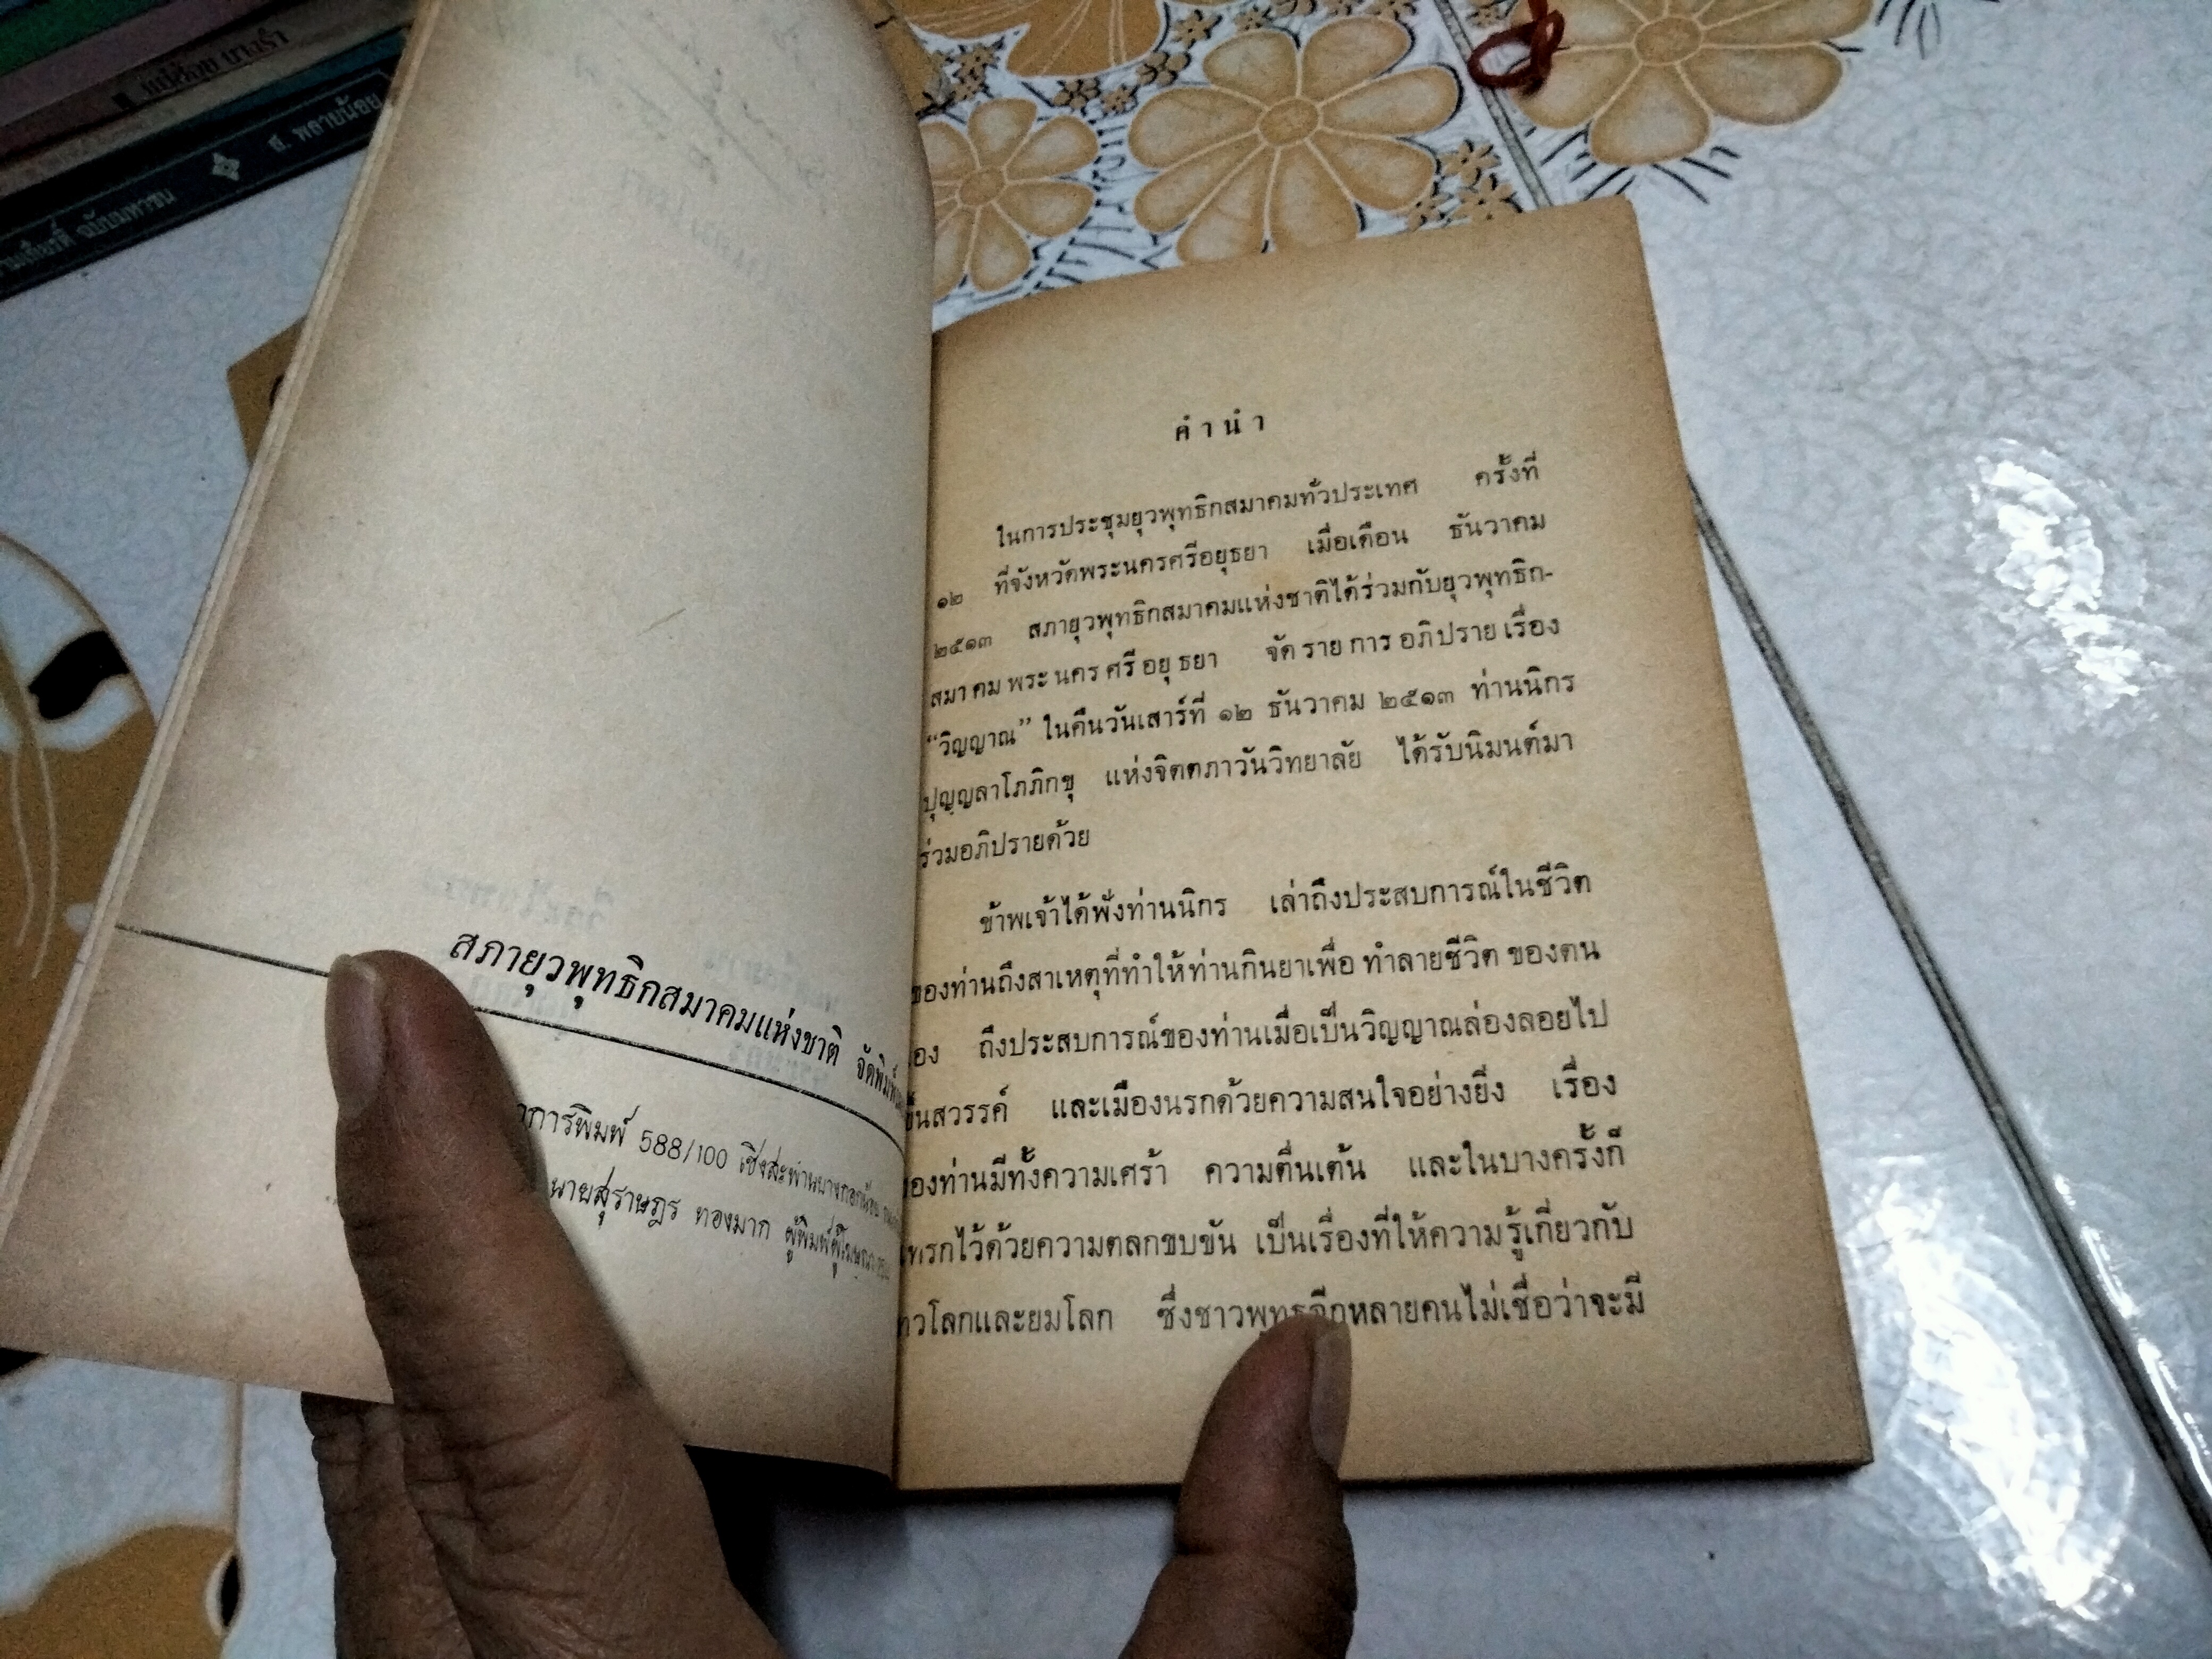 แม่ช้อย นางรำ
ส. พลายน้อย
ฉบับมหาชน
สภายุวพุทธิกสมาคมแห่งชาติ จัดพิมพ์
การพิมพ์ 588/100 เชิงสะพานบางกอกน้อย
นายสุราษฎร ทองมาก ผู้พิมพ์ผู้โฆษณา
คำนำ
ในการประชุมยุวพุทธิกสมาคมทั่วประเทศ ครั้งที่
๑๒ ที่จังหวัดพระนครศรีอยุธยา เมื่อเดือน ธันวาคม
๒๕๑๓ สภายุวพุทธิกสมาคมแห่งชาติได้ร่วมกับยุวพุทธิก-
สมาคมพระนครศรีอยุธยา จัดรายการอภิปรายเรื่อง
“วิญญาณ” ในคืนวันเสาร์ที่ ๑๒ ธันวาคม ๒๕๑๓ ท่านนิกร
ปุญฺญลาโภภิกขุ แห่งจิตตภาวันวิทยาลัย ได้รับนิมนต์มา
ร่วมอภิปรายด้วย
ข้าพเจ้าได้ฟังท่านนิกร เล่าถึงประสบการณ์ในชีวิต
ของท่านถึงสาเหตุที่ทำให้ท่านกินยาเพื่อทำลายชีวิตของตน
เอง ถึงประสบการณ์ของท่านเมื่อเป็นวิญญาณล่องลอยไป
ขึ้นสวรรค์ และเมืองนรกด้วยความสนใจอย่างยิ่ง เรื่อง
ของท่านมีทั้งความเศร้า ความตื่นเต้น และในบางครั้งก็
แทรกไว้ด้วยความตลกขบขัน เป็นเรื่องที่ให้ความรู้เกี่ยวกับ
เทวโลกและยมโลก ซึ่งชาวพุทธอีกหลายคนไม่เชื่อว่าจะมี